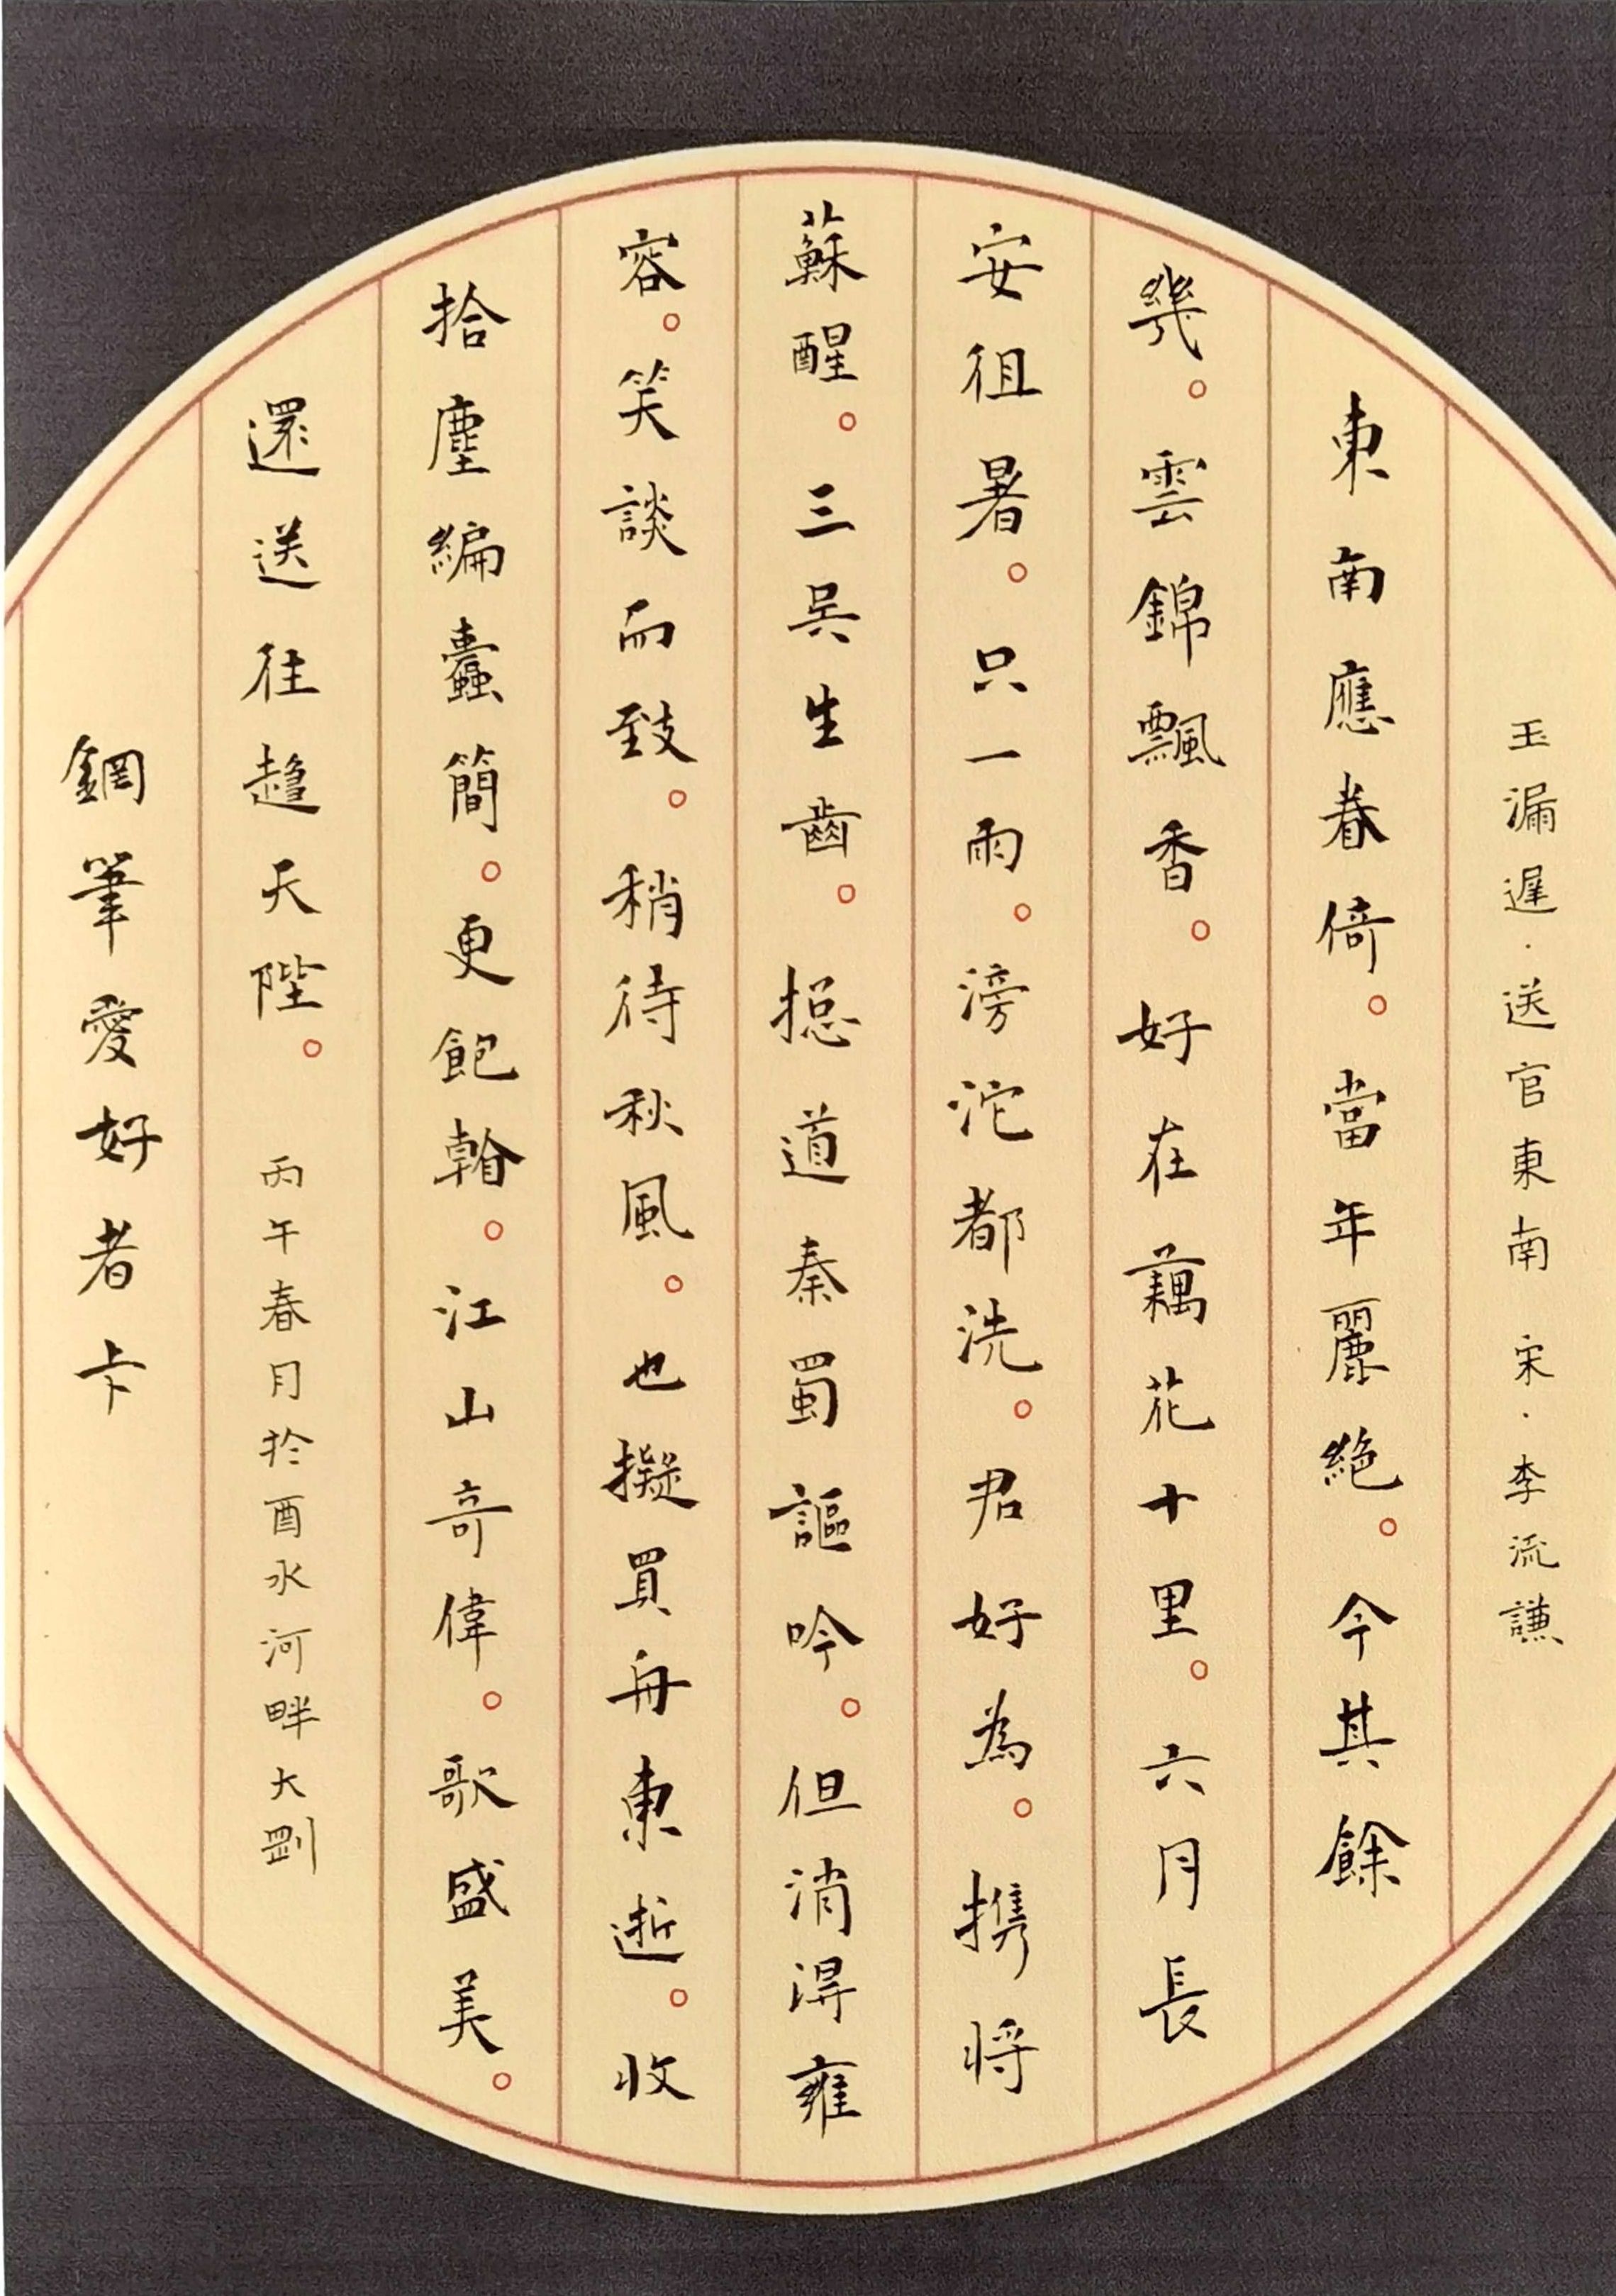 玉漏遲·送官東南 宋·李流謙
東南應眷倚。當年麗絕。今其餘
幾。雲錦飄香。好在藕花十里。六月長
安徂暑。只一雨。滂沱都洗。君好為。携将
蘇醒。三吳生齒。揔道秦蜀謳吟。但消淂雍
容。笑談而致。稍待秋風。也擬買舟東逝。收
拾塵編蠹簡。更飽飡。江山奇偉。歌盛美。
還送往趨天陛。 丙午春月於酉水河畔大剛
鋼筆愛好者卡